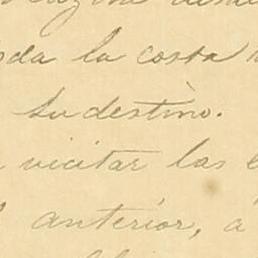 da la costa
su destino.
vicitar las
anterior, á